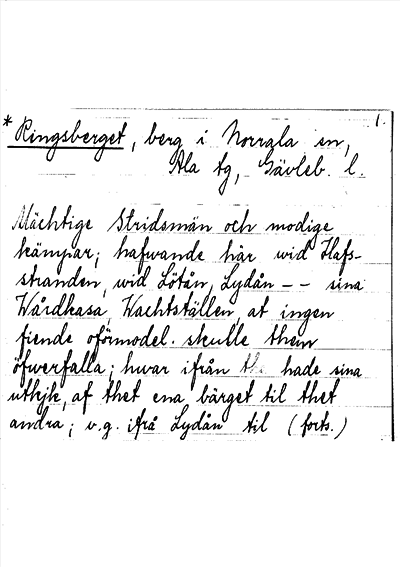 * Ringsberget, berg i Norrala sn, 1.
Ala tg, Gävleb. l.
Mächtige Stridsmän och modige
kämpar; hafwande här wid Hafs-
stranden, wid Lötån, Lydån – – sina
Wårdkasa Wachtställen, at ingen
fiende oförmodel. skulle them
öfwerfalla; hwar ifrån the hade sina
uthkjk, af thet ena bärget til thet
andra; v.g. ifrå Lydån til (forts.)